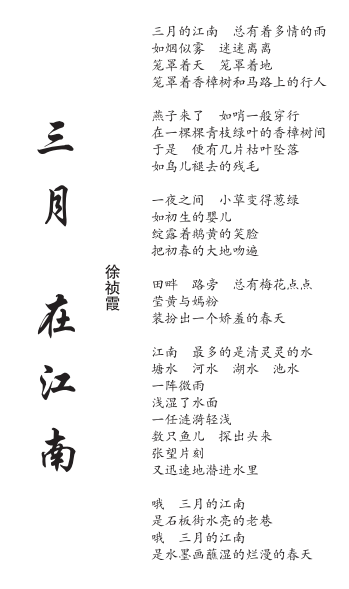 三月 在江南
徐祯霞
三月的江南　总有着多情的雨
如烟似雾　迷迷离离
笼罩着天　笼罩着地
笼罩着香樟树和马路上的行人
燕子来了　如哨一般穿行
在一棵棵青枝绿叶的香樟树间
于是　便有几片枯叶坠落
如鸟儿褪去的残毛
一夜之间　小草变得葱绿
如初生的婴儿
绽露着鹅黄的笑脸
把初春的大地吻遍
田畔　路旁　总有梅花点点
莹黄与嫣粉
装扮出一个娇羞的春天
江南　最多的是清灵灵的水
塘水　河水　湖水　池水
一阵微雨
浅湿了水面
一任涟漪轻浅
数只鱼儿　探出头来
张望片刻
又迅速地潜进水里
哦　三月的江南
是石板街水亮的老巷
哦　三月的江南
是水墨画蘸湿的烂漫的春天